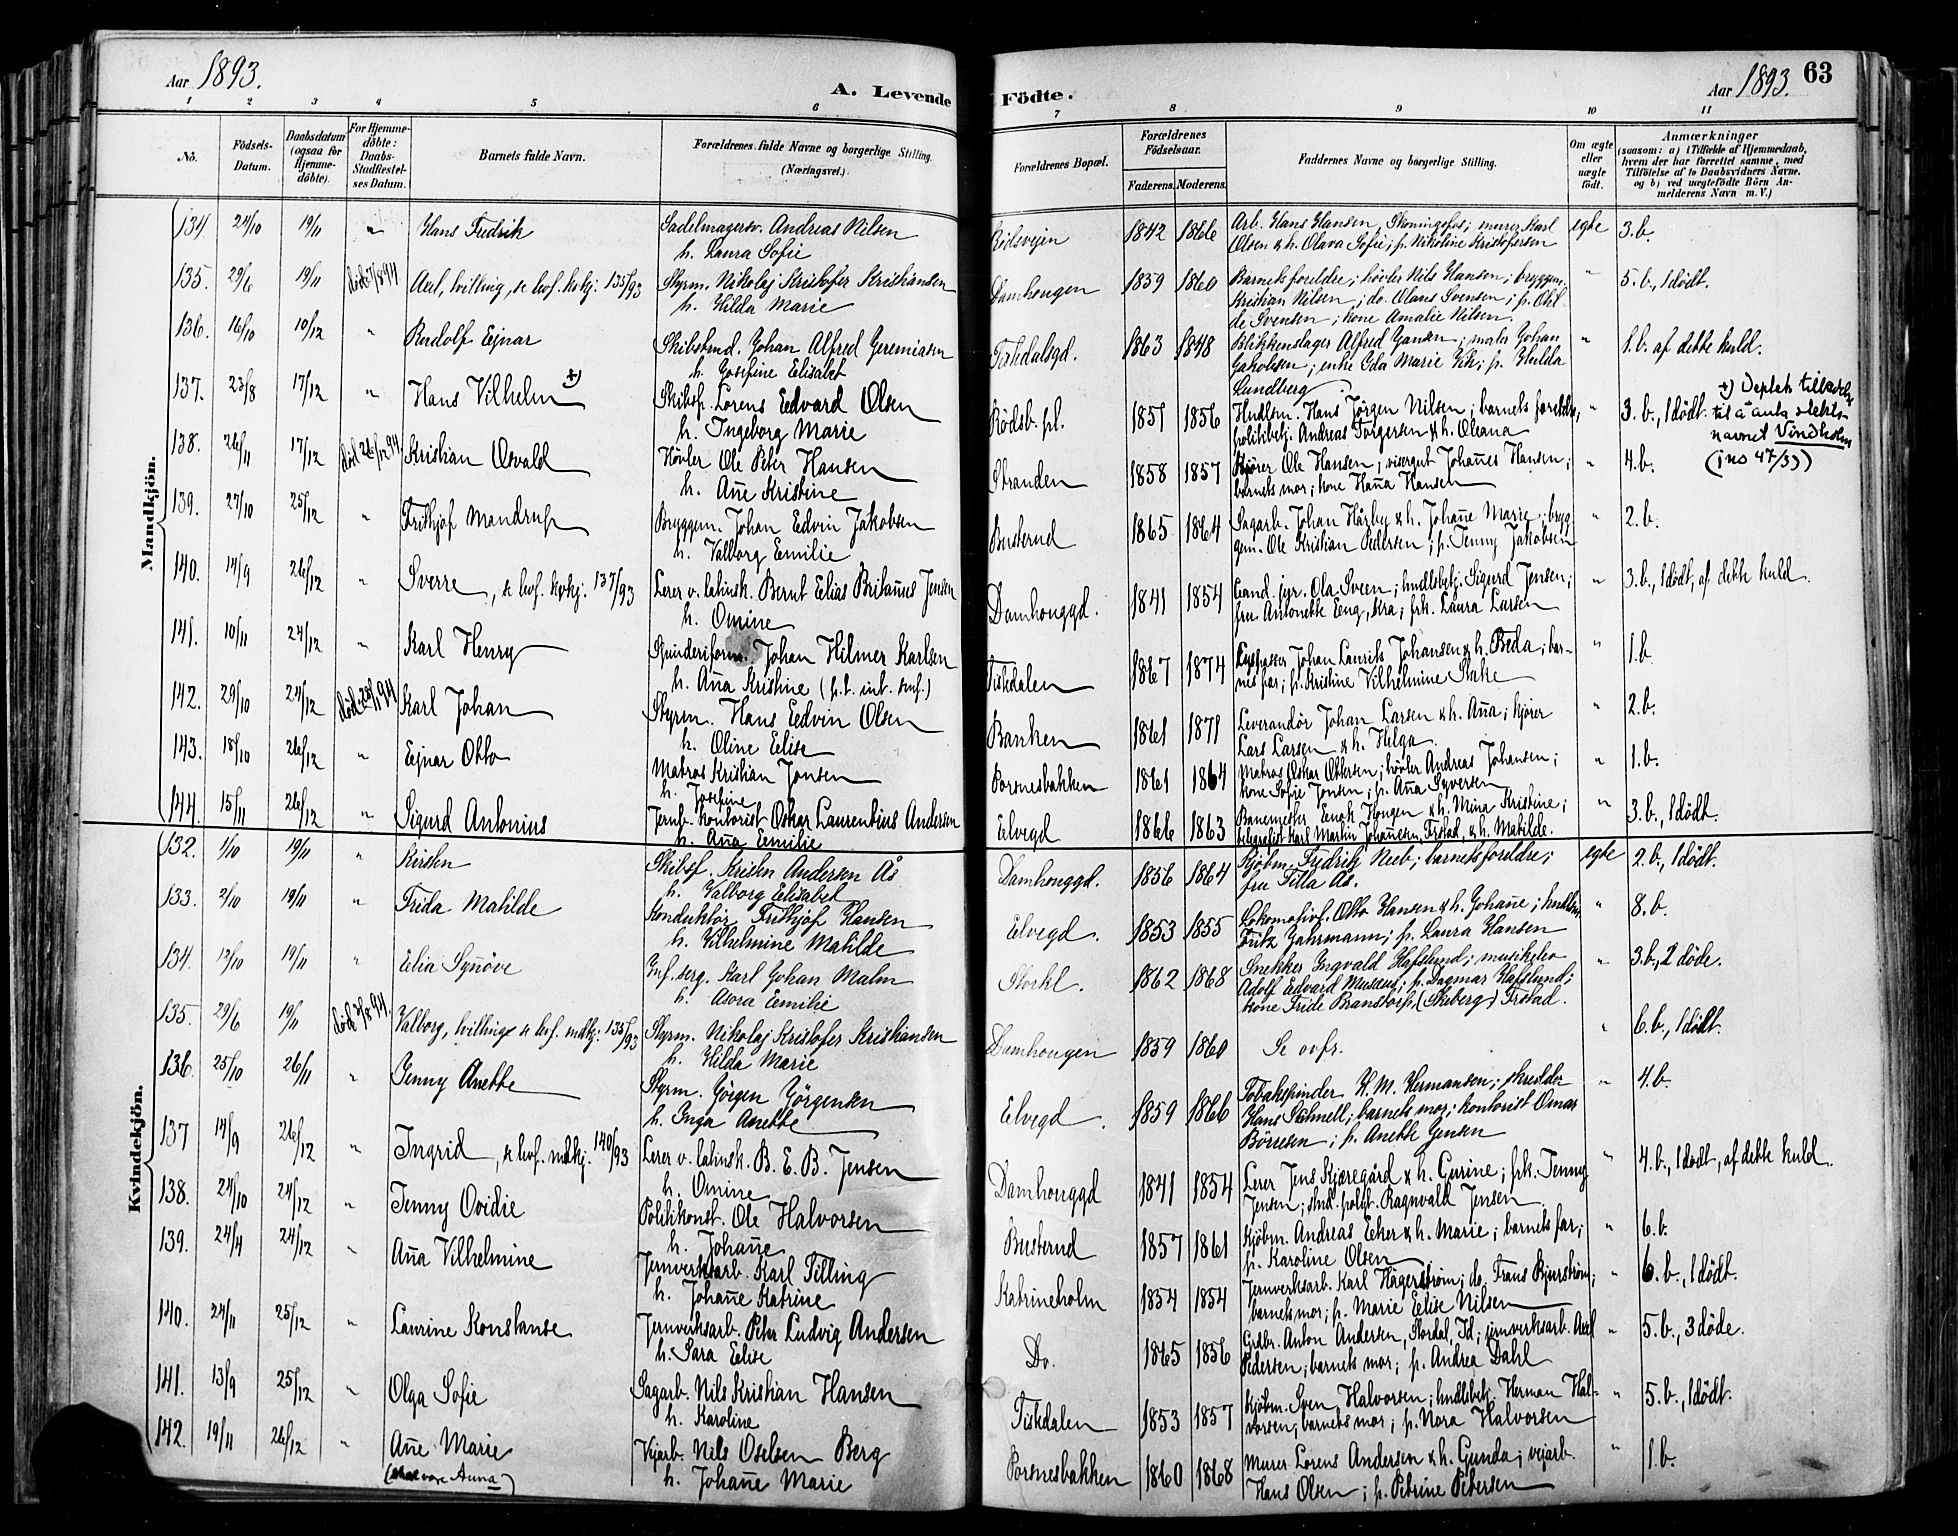 Aar 1893.
A. Levende Födte.
Aar 1893. 63
1 2 3 4 5 6 7 8 9 10 11
No.
Födsels-Datum.
Daabsdatum (ogsaa for Hjemmedöbte).
For Hjemmedöbte: Daabs-Stadfæstelses Datum.
Barnets fulde Navn.
Forældrenes fulde Navne og borgerlige Stilling. (Næringsvei.)
Forældrenes Bopæl.
Forældrenes Födselsaar.
Faderens. Moderens.
Faddernes Navne og borgerlige Stilling.
Om ægte eller uægte födt.
Anmærkninger
(saasom: a) i Tilfælde af Hjemmedaab, hvem der har forrettet samme, med Tilföielse af to Daabsvidners Navne. og b) ved uægtefödte Börn Anmelderens Navn m. V.)
Mandkjön.
134. 24/10 19/11 " Hans Fredrik Sadelmagersv. Andreas Nilsen 1842 1866 Arb. Hans Hansen, Skoningsfos; murer Karl egte 3. b.
h. Laura Sofie Rödsvejen Olsen & h. Olava Sofie; p. Nikoline Kristofersen
135. 29/6 19/11 död 7/8 94 Axel, tvilling, se lbf. kvkj. 135/93 Styrm. Nikolaj Kristofer Kristiansen Damhaugen 1859 1860 Barnets foreldre; hövler Nils Hansen; bryggem. " 5. b., 1 dödt.
h. Hilda Marie Kristian Nilsen; do. Olaus Svensen; p. Otil-
de Svensen; kone Amalie Nilsen.
136. 16/10 10/12 " Rudolf Ejnar Skibstmd. Johan Alfred Jeremiasen Tistedalsgd. 1863 1848 Blikkenslager Alfred Jansen; maler Johan " 1. b. af dette kuld.
h. Josefine Elisabet Jakobsen; enke Ida Marie Vik; p. Hulda
Lundberg
137. 23/8 17/12 " Hans Vilhelm +) Skibsf. Lorens Edvard Olsen Rödsb. pl. 1851 1856 Hndlsm. Hans Jörgen Nilsen; barnets foreldre; " 3. b., 1 dödt.
h. Ingeborg Marie politibetj. Andreas Torgersen & h. Oleana
+) Deptets tilladelse til å anta slektsnavnet Vindholm (jno 47/33)
138. 26/11 17/12 död 26/12 94 Kristian Osvald Hövler Ole Peter Hansen Stranden 1858 1857 Kjörer Ole Hansen; visergut Johannes Hansen; " 4. b.
h. Ane Kristine barnets mor; kone Hana Hansen
139. 27/10 25/12 " Fritjof Mandrup Bryggem. Johan Edvin Jakobsen Busterud 1865 1864 Sagarb. Johan Hårby & h. Johane Marie; bryg- " 2. b.
h. Valborg Emilie gem. Ole Kristian Pedersen; p. Jenny Jakobsen
140. 14/9 26/12 " Sverre, se lbf. kvkj. 137/93 Lerer v. latinsk. Bernt Elias Britanus Jensen Damhauggd. 1841 1854 Cand. jur. Ola Sveen; hndlsbetj. Sigurd Jensen; " 3. b., 1 dödt, af dette kuld.
h. Omine fru Antonette Eng, Kra; frk. Laura Larsen
141. 10/11 24/12 " Karl Henry Spinderiform. Johan Hilmer Karlsen Tistedalen 1867 1874 Johan Laurits Johansen & h. Beda; bar- " 1. b.
h. Ana Kristine (p.t. int. smf.) nets far; p. Kristine Vilhelmine Stake
142. 29/10 24/12 Karl Johan Styrm. Hans Edvin Olsen Banken 1861 1871 Leverandör Johan Larsen & h. Ana; kjörer " 2. b.
h. Oline Elise Lars Larsen & h. Helga
143. 18/10 26/12 " Ejnar Otto Matros Kristian Jonsen Porsnesbakken 1861 1864 Matros Oskar Ottersen; hövler Andreas Johansen; " 1. b.
h. Josefine kone Sofie Jonsen; p. Ana Syversen
144. 15/11 26/12 " Sigurd Antonius Jernb. kontorist Oskar Laurentius Andersen Elvegd 1866 1863 Banemester Enok Haugen & h. Mina Kristine; " 3. b., 1 dödt.
h. Ana Emilie telegrafist Karl Martin Johannesen, Frstad, & h. Matilde.
Kvindekjön.
132. 1/10 19/11 " Kirsten Skibsf. Kristen Andersen Ås Damhauggd. 1856 1864 Kjöbm. Fredrik Neeb; barnets foreldre; egte 2. b., 1 dödt.
h. Valborg Elisabet fru Tilla Ås.
133. 2/10 19/11 " Frida Matilde Konduktör Fritjof Hansen Elvegd. 1853 1855 Lokomotivf. Otto Hansen & h. Johane; hndlsm. " 8. b.
h. Vilhelmine Matilde Fritz Jahrmann; p. Laura Hansen
134. 13/10 19/11 " Elia Synöve Inf. serg. Karl Johan Malm Storkl. 1862 1868 Snekker Ingvald Hafslund; musikelev " 3. b., 2 döde.
h. Asora Emilie Adolf Edvard Museus; p. Dagmar Hafslund;
kone Frida Branstorp, (Skeberg) Frstad.
135. 29/6 19/11 död 3/8 94 Valborg, tvilling se lbf. mdkj. 135/93 Styrm. Nikolaj Kristofer Kristiansen Damhaugen 1859 1860 Se ovfr. " 6. b., 1 dödt.
h. Hilda Marie
136. 25/10 26/11 " Jenny Anette Styrm. Jörgen Jörgensen Elvegd. 1859 1866 Tobakspinder H. M. Hermansen; skredder " 4. b.
h. Inga Anette Hans Schnell; barnets mor; kontorist Omar
Börresen; p. Anette Jensen
137 14/9 26/12 " Ingrid, se lbf. mdkj. 140/93 Lerer v. latinsk. B. E. B. Jensen Damhauggd 1841 1854 Lerer Jens Kjæregård & h. Gurine; frk. Jenny " 4. b., 1 dödt, af dette kuld.
h. Omine Jensen; stud. polyt. Ragnvald Jensen
138. 24/10 24/12 " Jenny Ovidie Politikonst. Ole Halvorsen Busterud 1857 1861 Kjöbm. Andreas Eeker & h. Marie; barnets far; " 6. b.
h. Johane p. Karoline Olsen
139. 24/4 24/12 " Ana Vilhelmine Jernverksarb. Karl Tilling Katrineholm 1854 1854 Jernverksarb. Karl Hägerström; do. Frans Bjurström; " 6. b., 1 dödt.
h. Johane Katrine barnets mor; p. Marie Elise Nilsen
140. 24/11 25/12 " Laurine Konstanse Jernverksarb. Peter Ludvig Andersen Do. 1865 1856 Grdbr. Anton Andersen, Stordal, Id; jernverksarb. Axel " 5. b., 3 döde.
h. Sara Elise Pedersen; barnets mor; p. Andrea Dahl
141. 13/9 25/12 " Olga Sofie Sagarb. Nils Kristian Hansen Tistedalen 1853 1857 Kjöbm. Sven Halvorsen; hndlsbetj. Herman Hal- " 5. b., 1 dödt.
h. Karoline vorsen; barnets mor; p. Nora Halvorsen
142. 19/11 26/12 " Ane Marie Vejarb. Nils Oselsen Berg Porsnesbakken 1860 1868 Murer Lorens Andersen & h. Gunda; vejarb. " 1. b.
(skal være Anna) h. Johane Marie Hans Olsen; p. Petrine Petersen